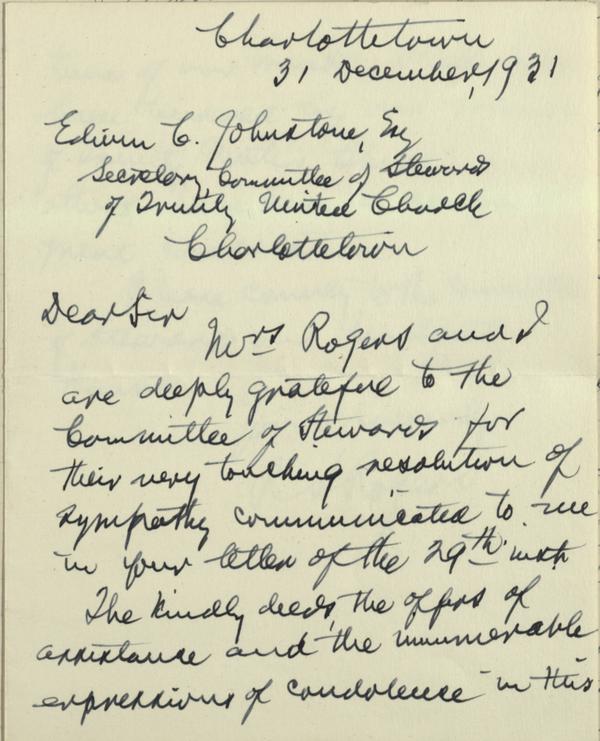 Charlottetown
31 December, 1931
Edwin C. Johnstone, Esq
Secretary Committee of Stewards
of Trinity United Church
Charlottetown
Dear Sir
Mrs Rogers and I
are deeply grateful to the
Committee of Stewards for
their very touching resolution of
sympathy communicated to me
in your letter of the 29th inst
The kindly deeds, the offers of
assistance and the innumerable
expressions of condolence in this